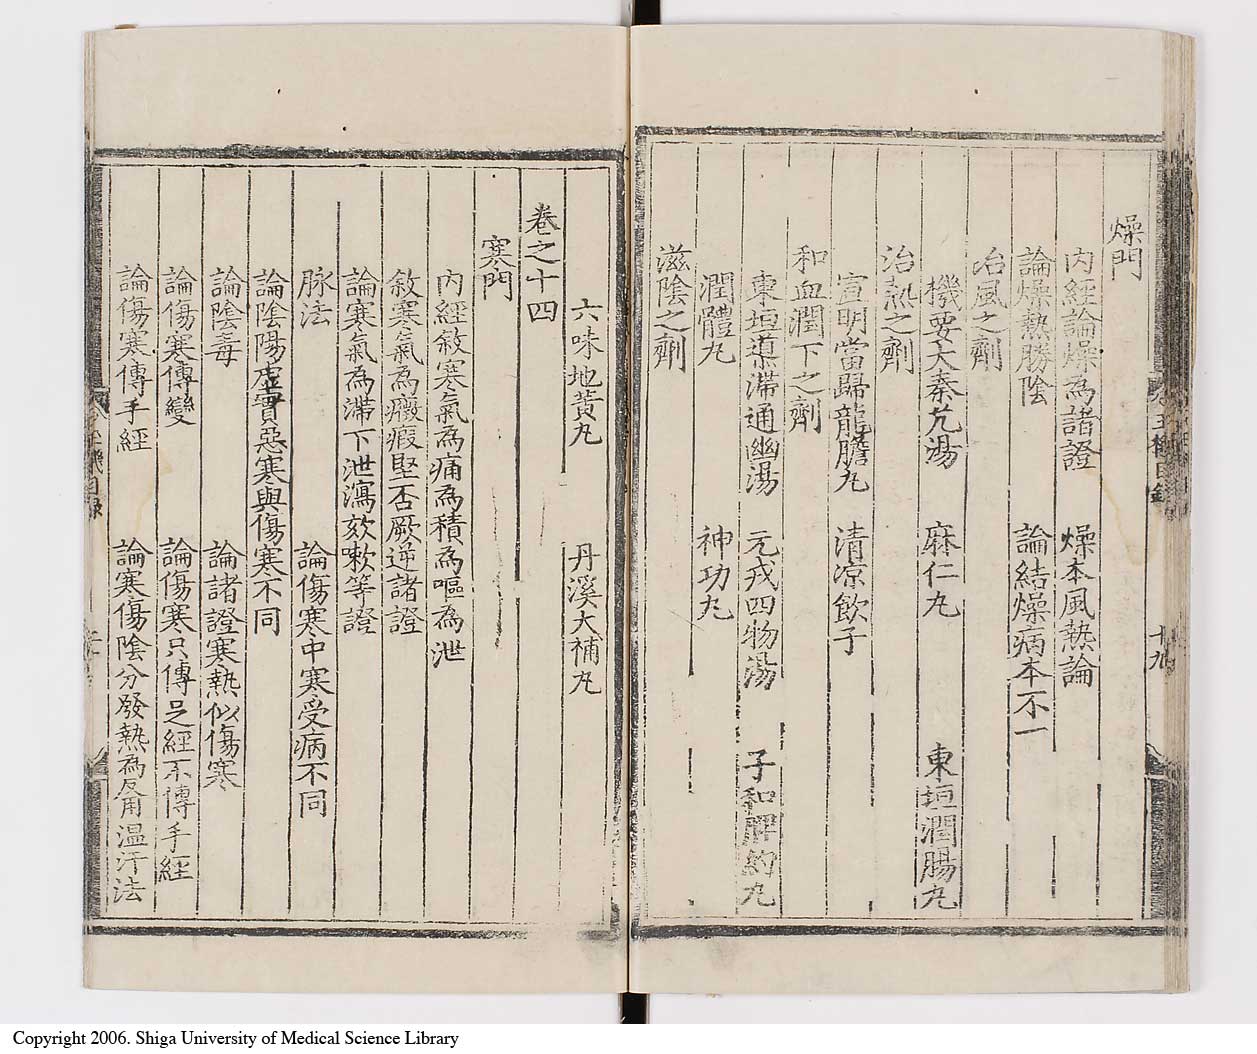 燥門
內經論燥為諸證　燥本風熱論
論燥熱勝陰　論結燥病本不一
治風之劑
機要大秦艽湯　麻仁丸　東垣潤腸丸
治熱之劑
宣明當歸龍膽丸　清凉飲子
和血潤下之劑
東垣導滯通幽湯　元戎四物湯　子和脾約丸
潤體丸　神功丸
滋陰之劑
十九
六味地黃丸　丹溪大補丸
卷之十四
寒門
內經敘寒氣為痛為積為嘔為泄
敘寒氣為癥瘕堅否厥逆諸證
論寒氣為滯下泄瀉欬嗽等證
脉法　論傷寒中寒受病不同
論陰陽虛實惡寒與傷寒不同
論陰毒　論諸證寒熱似傷寒
論傷寒傳變　論傷寒只傳足經不傳手經
論傷寒傳手經　論寒傷陰分發熱為眚用温汗法
Copyright 2006. Shiga University of Medical Science Library